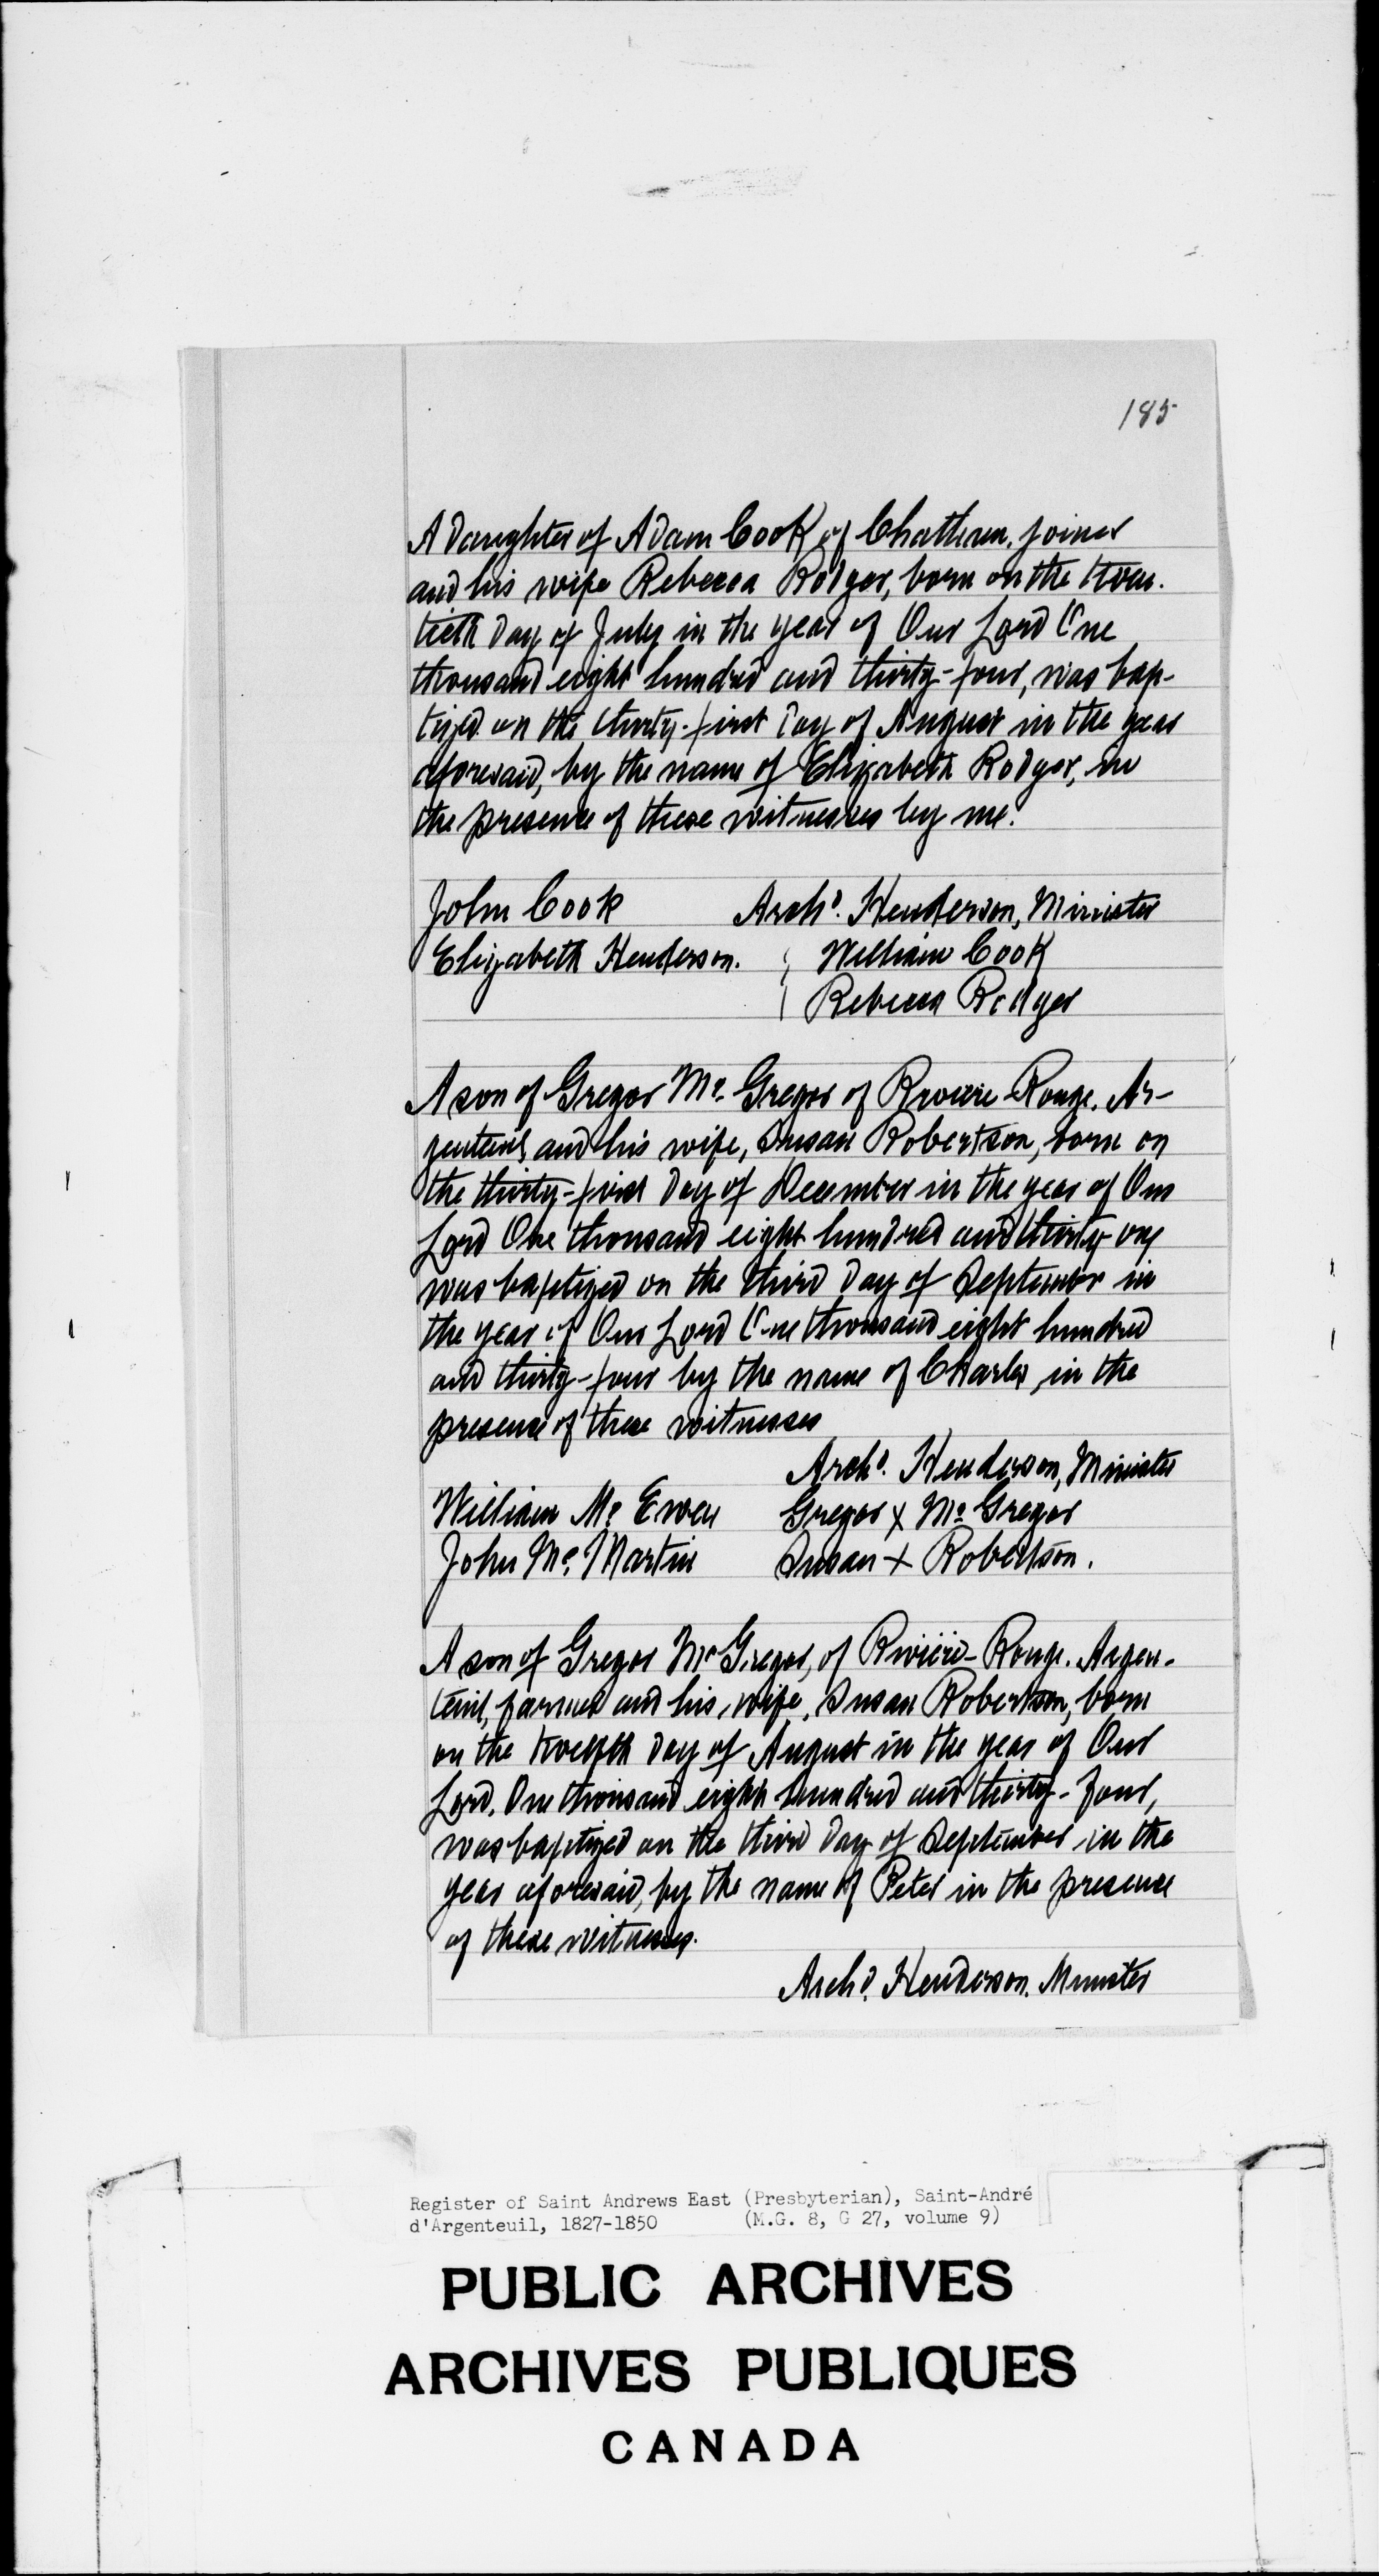 185
A daughter of Adam Cook, of Chatham, joiner
and his wife Rebecca Rodger, born on the twen-
tieth day of July in the year of Our Lord One
thousand eight hundred and thirty-four, was bap-
tized on the thirty-first day of August in the year
aforesaid, by the name of Elizabeth Rodger, in
the presence of these witnesses by me.
John Cook Archd. Henderson, Minister
Elizabeth Henderson. William Cook
Rebecca Rodger
A son of Gregor Mc. Gregor of Riviere-Rouge, Ar-
genteuil, and his wife, Susan Robertson, born on
the thirty-first day of December in the year of Our
Lord One thousand eight hundred and thirty one
was baptized on the third day of September in
the year of Our Lord One thousand eight hundred
and thirty-four by the name of Charles, in the
presence of these witnesses
Archd. Henderson, Minister
William Mc. Ewen Gregor x Mc. Gregor
John Mc. Martin Susan + Robertson.
A son of Gregor McGregor, of Rivière-Rouge, Argen-
teuil, farmer and his wife, Susan Robertson, born
on the twelfth day of August in the year of Our
Lord, One thousand eight hundred and thirty-four,
was baptized on the third day of September in the
year aforesaid, by the name of Peter in the presence
of these witnesses.
Archd. Henderson, Minister
Register of Saint Andrews East (Presbyterian), Saint-André
d'Argenteuil, 1827-1850 (M.G. 8, G 27, volume 9)
PUBLIC ARCHIVES
ARCHIVES PUBLIQUES
CANADA